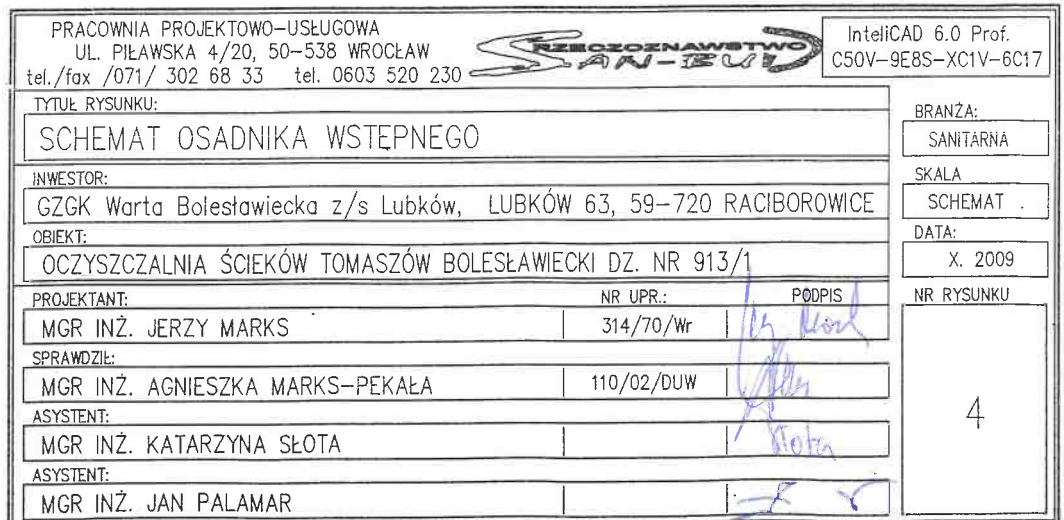 PRACOWNIA PROJEKTOWO-USŁUGOWA
UL. PIŁAWSKA 4/20, 50-538 WROCŁAW
tel./fax /071/ 302 68 33 tel. 0603 520 230
RZECZOZNAWSTWO
SAN-BUD
InteliCAD 6.0 Prof.
C50V-9E8S-XC1V-6C17
TYTUŁ RYSUNKU:
SCHEMAT OSADNIKA WSTĘPNEGO
BRANŻA:
SANITARNA
INWESTOR:
GZGK Warta Bolesławiecka z/s Lubków, LUBKÓW 63, 59-720 RACIBOROWICE
SKALA
SCHEMAT
OBIEKT:
OCZYSZCZALNIA ŚCIEKÓW TOMASZÓW BOLESŁAWIECKI DZ. NR 913/1
DATA:
X. 2009
PROJEKTANT: NR UPR.: PODPIS
MGR INŻ. JERZY MARKS 314/70/Wr
SPRAWDZIŁ:
MGR INŻ. AGNIESZKA MARKS-PEKAŁA 110/02/DUW
ASYSTENT:
MGR INŻ. KATARZYNA SŁOTA
ASYSTENT:
MGR INŻ. JAN PALAMAR
NR RYSUNKU
4